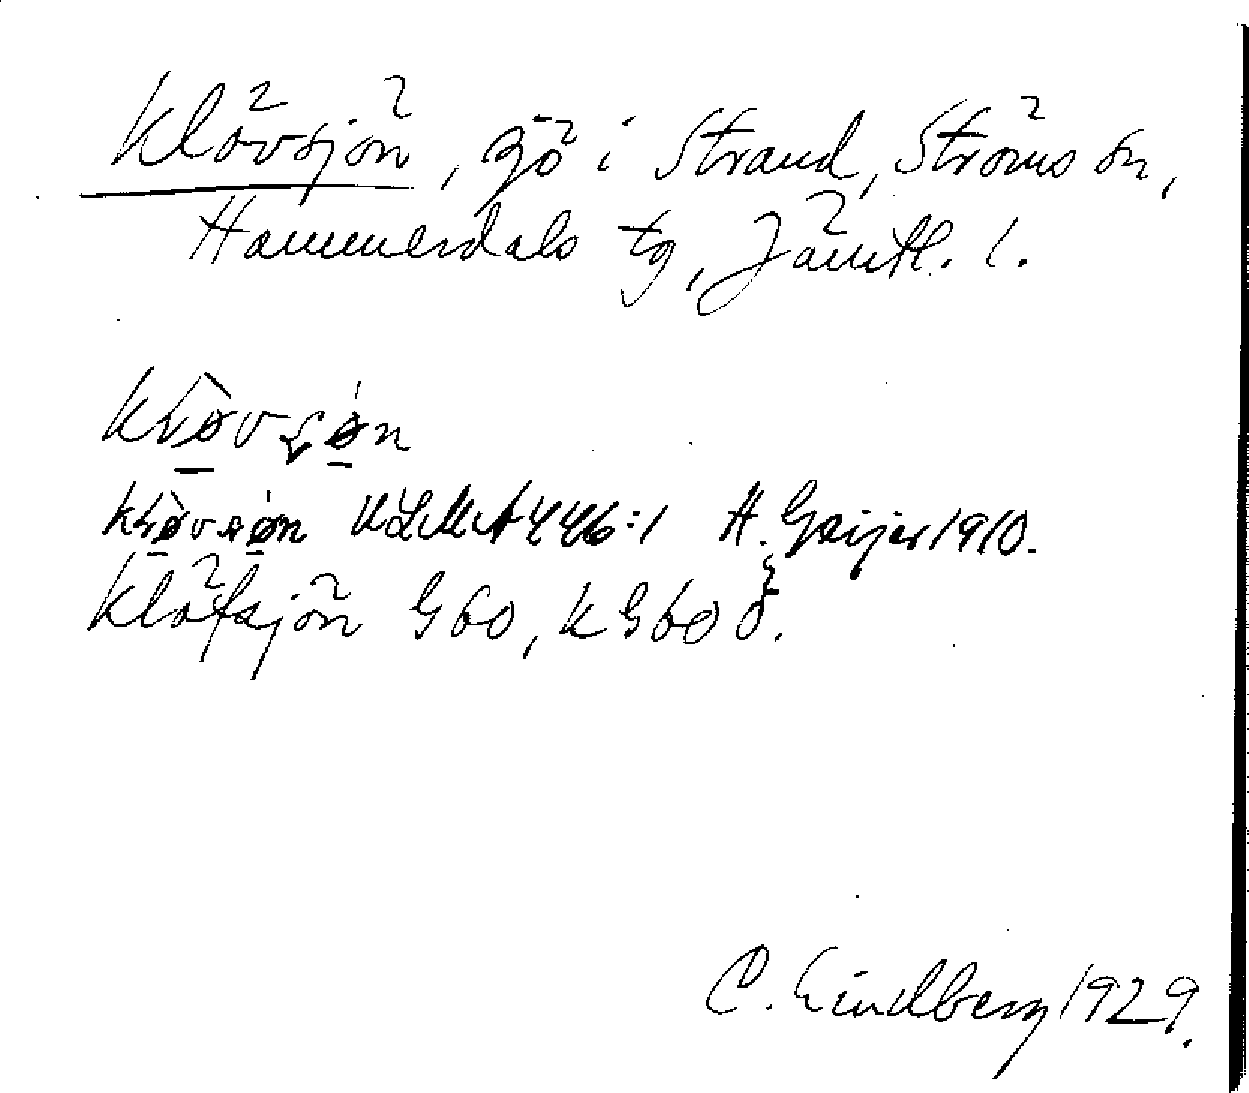 Klövsjön, sjö i Strand, Ströms sn,
Hammerdals tg, Jämtl. l.
ULMA 446:1 H. Geijer 1910.
Klöfsjön G 60, k G 60 Ö.
C. Lindberg 1929.